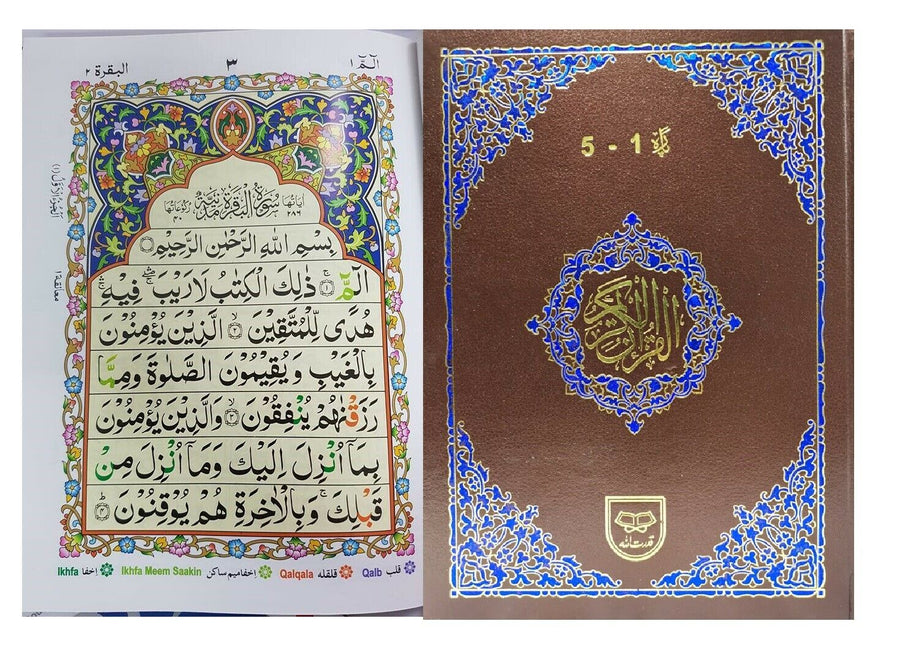 الٓمّٓ ١ ٣ البقرة ٢
اٰيَاتُهَا ٢٨٦ سُوْرَةُ الْبَقَرَةِ مَدَنِيَّةٌ رُكُوْعَاتُهَا ٤٠
بِسْمِ اللهِ الرَّحْمٰنِ الرَّحِيْمِ
الٓمّٓ ۚ﴿١﴾ ذٰلِكَ الْكِتٰبُ لَا رَيْبَ ۛ فِيْهِ ۛ
هُدًى لِّلْمُتَّقِيْنَ ﴿٢﴾ الَّذِيْنَ يُؤْمِنُوْنَ
بِالْغَيْبِ وَيُقِيْمُوْنَ الصَّلٰوةَ وَمِمَّا
رَزَقْنٰهُمْ يُنْفِقُوْنَ ﴿٣﴾ وَالَّذِيْنَ يُؤْمِنُوْنَ
بِمَآ اُنْزِلَ اِلَيْكَ وَمَآ اُنْزِلَ مِنْ
قَبْلِكَ ۚ وَبِالْاٰخِرَةِ هُمْ يُوْقِنُوْنَ ﴿٤﴾
اَلْجُزْءُ الْاَوَّلُ (١)
معانقة ١
قلب Qalb قلقله Qalqala اخفا ميم ساكن Ikhfa Meem Saakin اخفا Ikhfa
پارہ 1 - 5
القرآن الكريم
قدرت الله